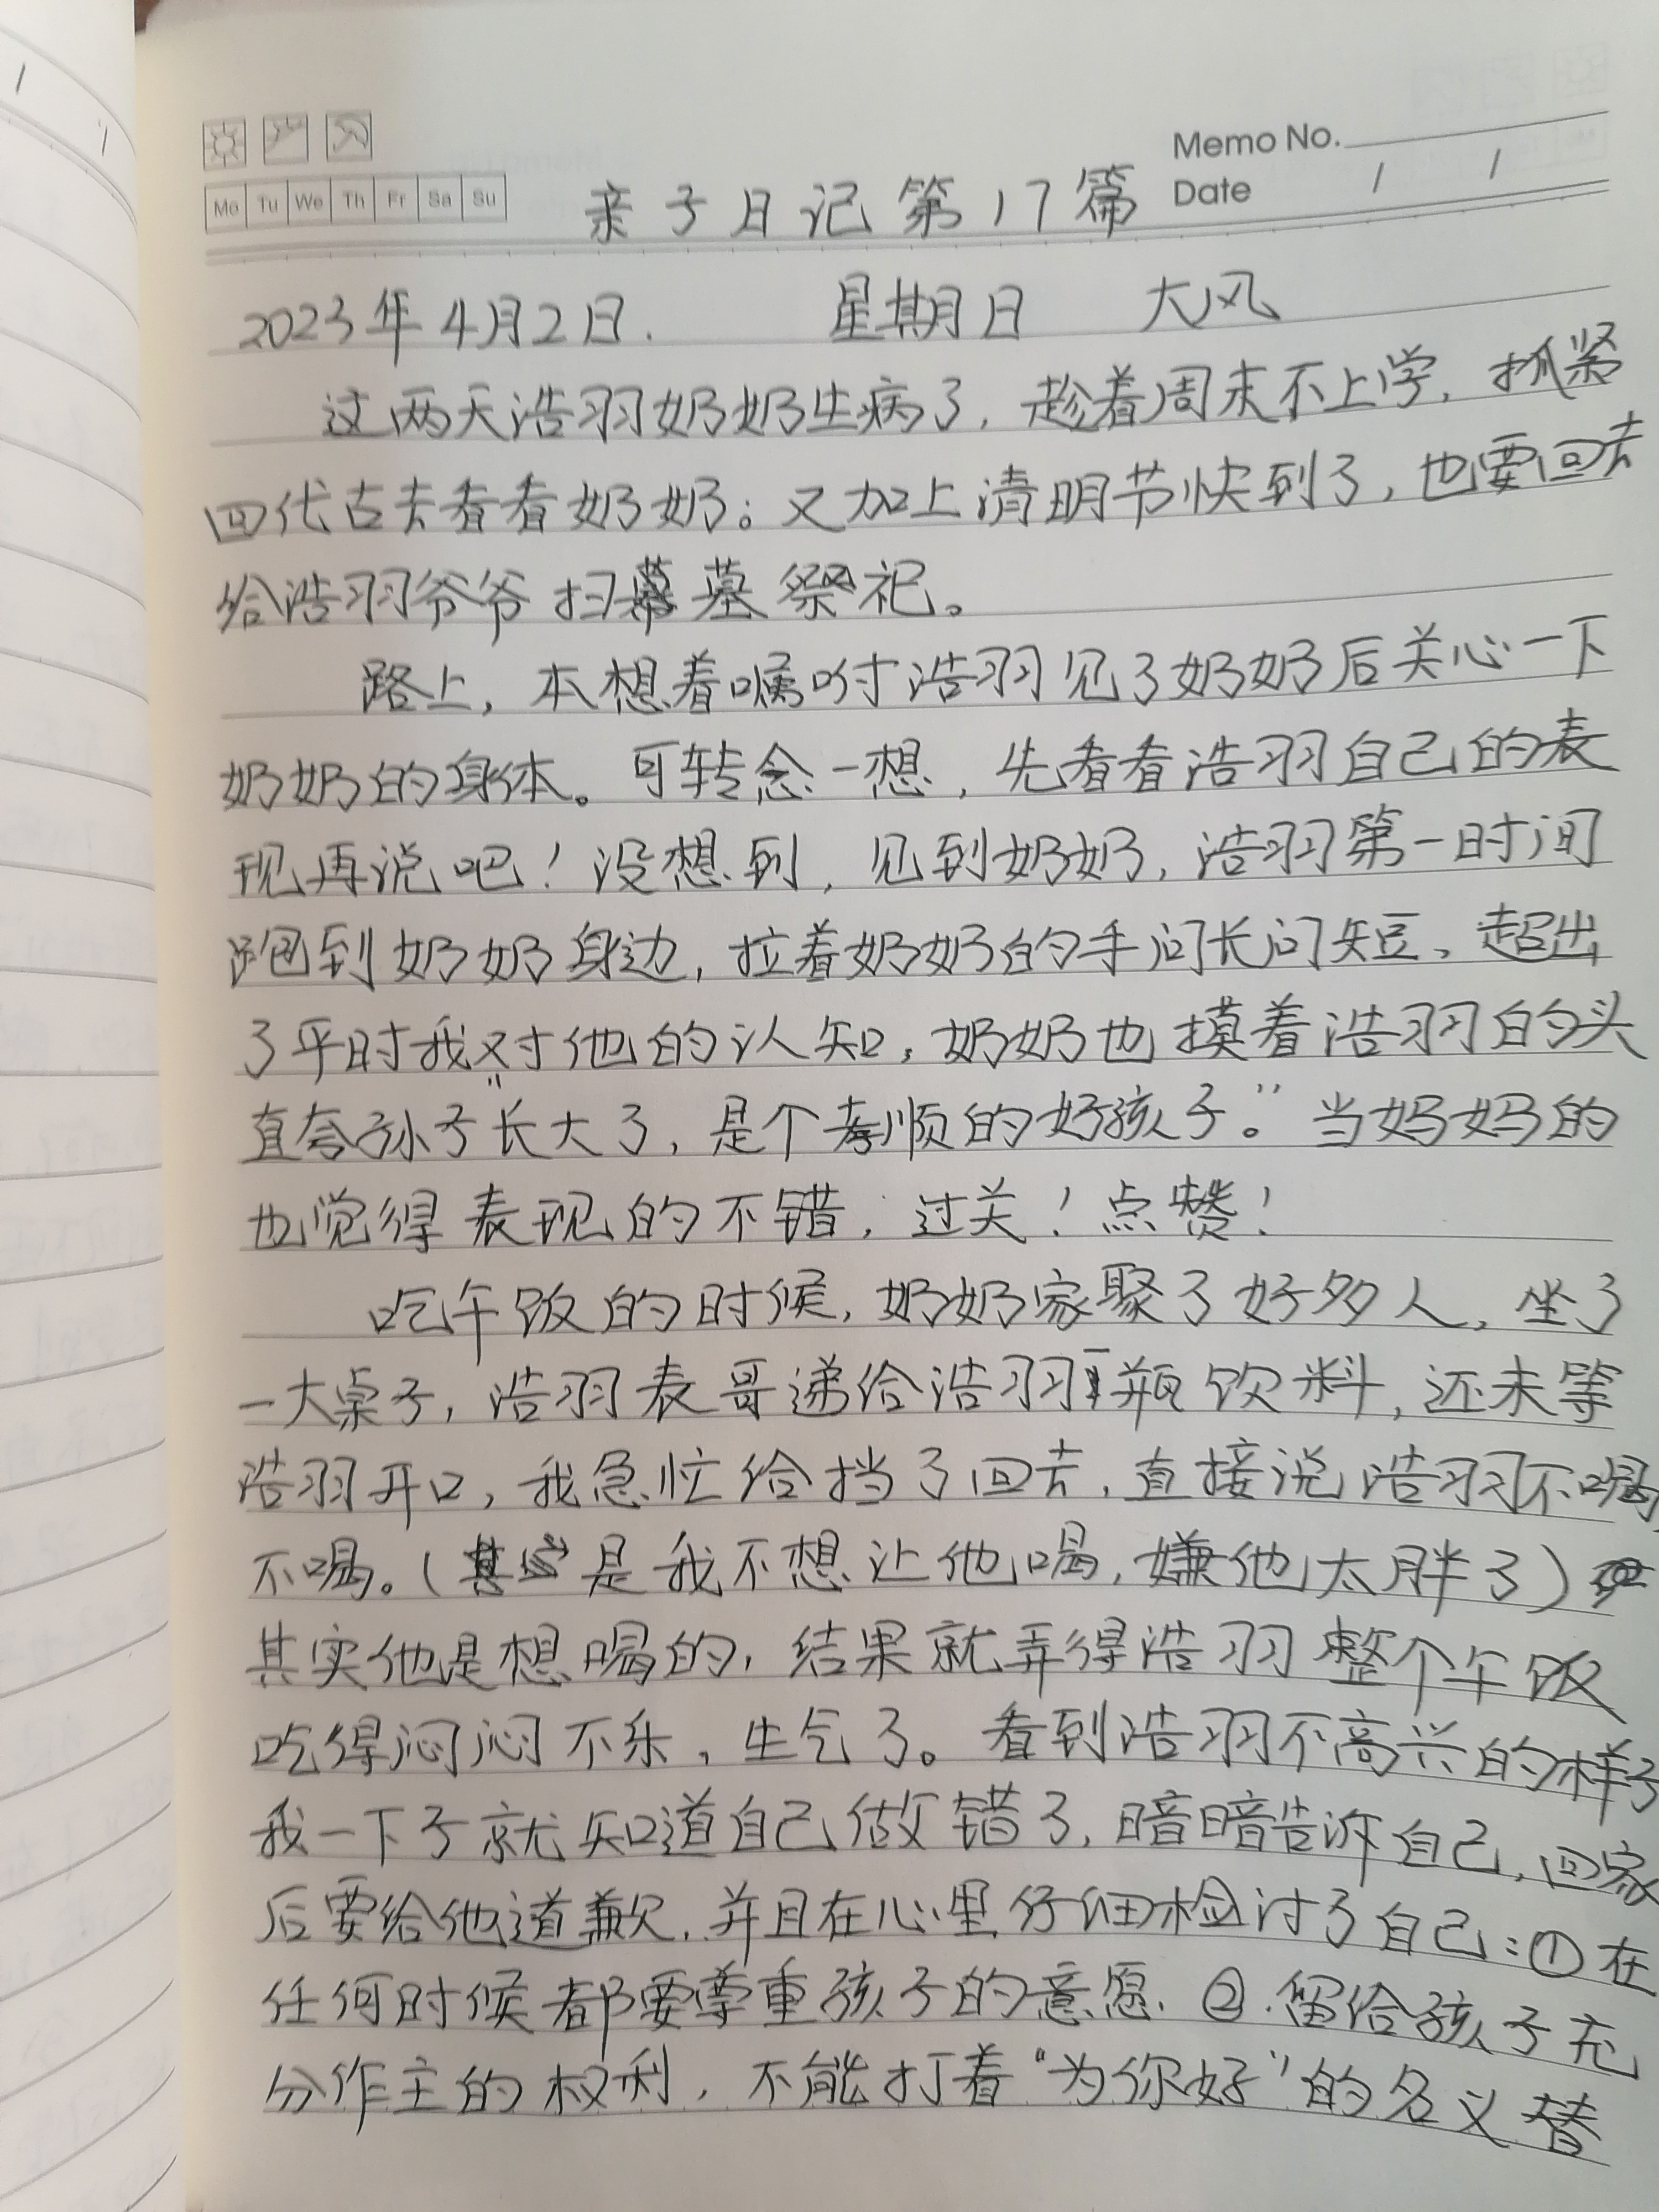 Memo No.
Mo Tu We Th Fr Sa Su
Date / /
亲子日记第17篇
2023年4月2日. 星期日 大风
过两天浩羽奶奶生病了，趁着周末不上学，抓紧
回代古去看看奶奶。又加上清明节快到了，也要回去
给浩羽爷爷扫墓祭祀。
路上，本想着嘱咐浩羽见了奶奶后关心一下
奶奶的身体。可转念一想，先看看浩羽自己的表
现再说吧！没想到，见到奶奶，浩羽第一时间
跑到奶奶身边，拉着奶奶的手问长问短，超出
了平时我对他的认知，奶奶也摸着浩羽的头
直夸孙子“长大了，是个孝顺的好孩子。”当妈妈的
也觉得表现的不错，过关！点赞！
吃午饭的时候，奶奶家聚了好多人，坐了
一大桌子，浩羽表哥递给浩羽1瓶饮料，还未等
浩羽开口，我急忙给挡了回去，直接说浩羽不喝，
不喝。（其实是我不想让他喝，嫌他太胖了）
其实他是想喝的，结果就弄得浩羽整个午饭
吃得闷闷不乐，生气了。看到浩羽不高兴的样子
我一下子就知道自己做错了，暗暗告诉自己，回家
后要给他道歉，并且在心里仔细检讨了自己：①在
任何时候都要尊重孩子的意愿、②.留给孩子充
分作主的权利，不能打着“为你好”的名义替